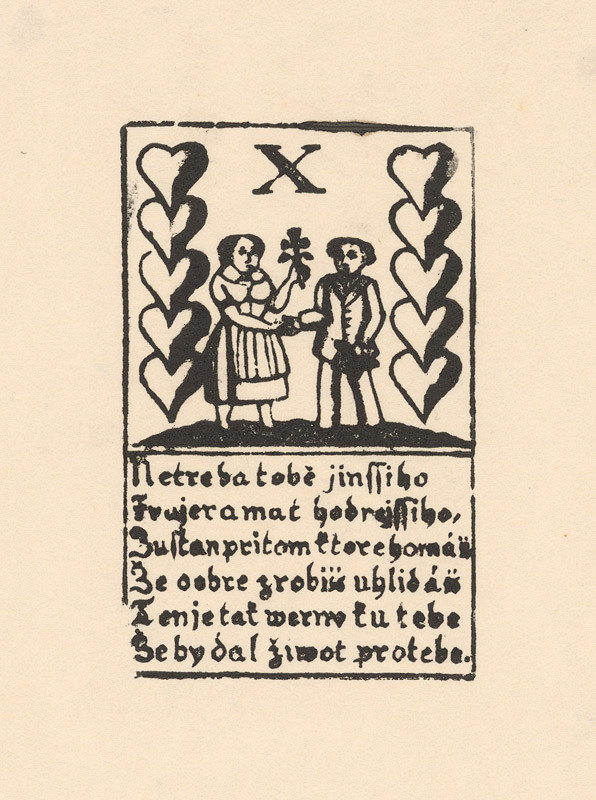 X
Netreba tobě jinssiho
hodrejssiho,
Zustan pritom ktereho máš
Že dobre zrobiš uhlidáš
Ten je tak werny ku tebe
Že by dal žiwot pro tebe.